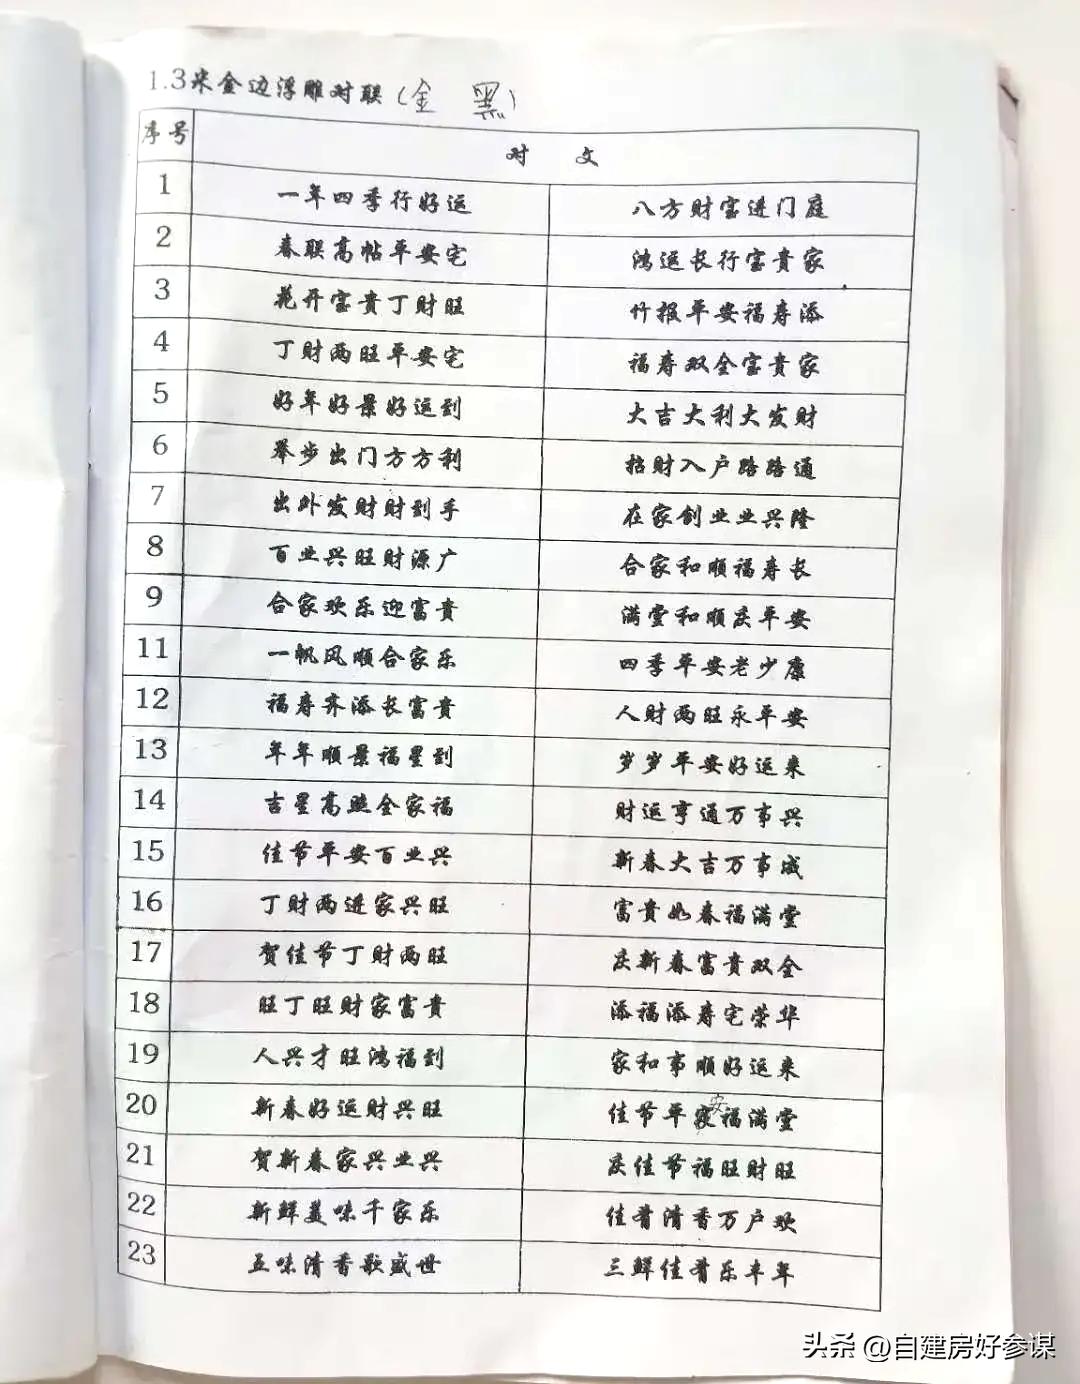 1.3米金边浮雕对联(金 黑)
序号 对 文
1 一年四季行好运 八方财宝进门庭
2 春联高帖平安宅 鸿运长行宝贵家
3 花开宝贵丁财旺 竹报平安福寿添
4 丁财两旺平安宅 福寿双全宝贵家
5 好年好景好运到 大吉大利大发财
6 举步出门方方利 招财入户路路通
7 出外发财财到手 在家创业业兴隆
8 百业兴旺财源广 合家和顺福寿长
9 合家欢乐迎富贵 满堂和顺庆平安
11 一帆风顺合家乐 四季平安老少康
12 福寿齐添长富贵 人财两旺永平安
13 年年顺景福星到 岁岁平安好运来
14 吉星高照全家福 财运亨通万事兴
15 佳节平安百业兴 新春大吉万事成
16 丁财两进家兴旺 富贵如春福满堂
17 贺佳节丁财两旺 庆新春富贵双全
18 旺丁旺财家富贵 添福添寿宅荣华
19 人兴才旺鸿福到 家和事顺好运来
20 新春好运财兴旺 佳节平安福满堂
21 贺新春家兴业兴 庆佳节福旺财旺
22 新鲜美味千家乐 佳肴清香万户欢
23 五味清香歌盛世 三鲜佳肴乐丰年
头条 @自建房好参谋